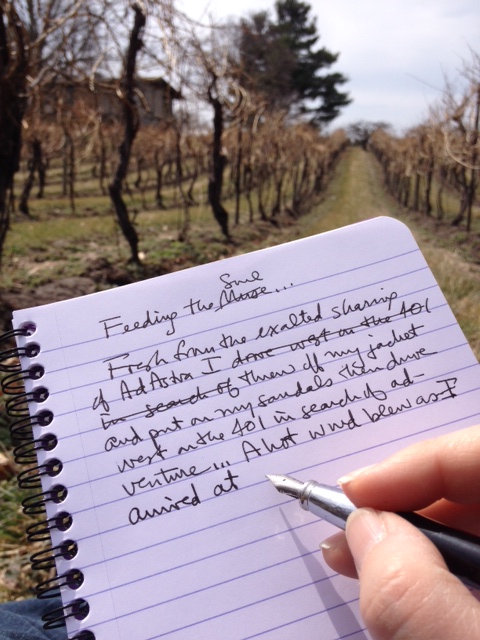 Smle
Feeding the Muse...
Fresh from the exalted sharing
of AdAstra I drove west on the 401
in search of threw off my jacket
and put on my sandals then drive
west on the 401 in search of ad-
venture... A hot wind blew as I
arrived at